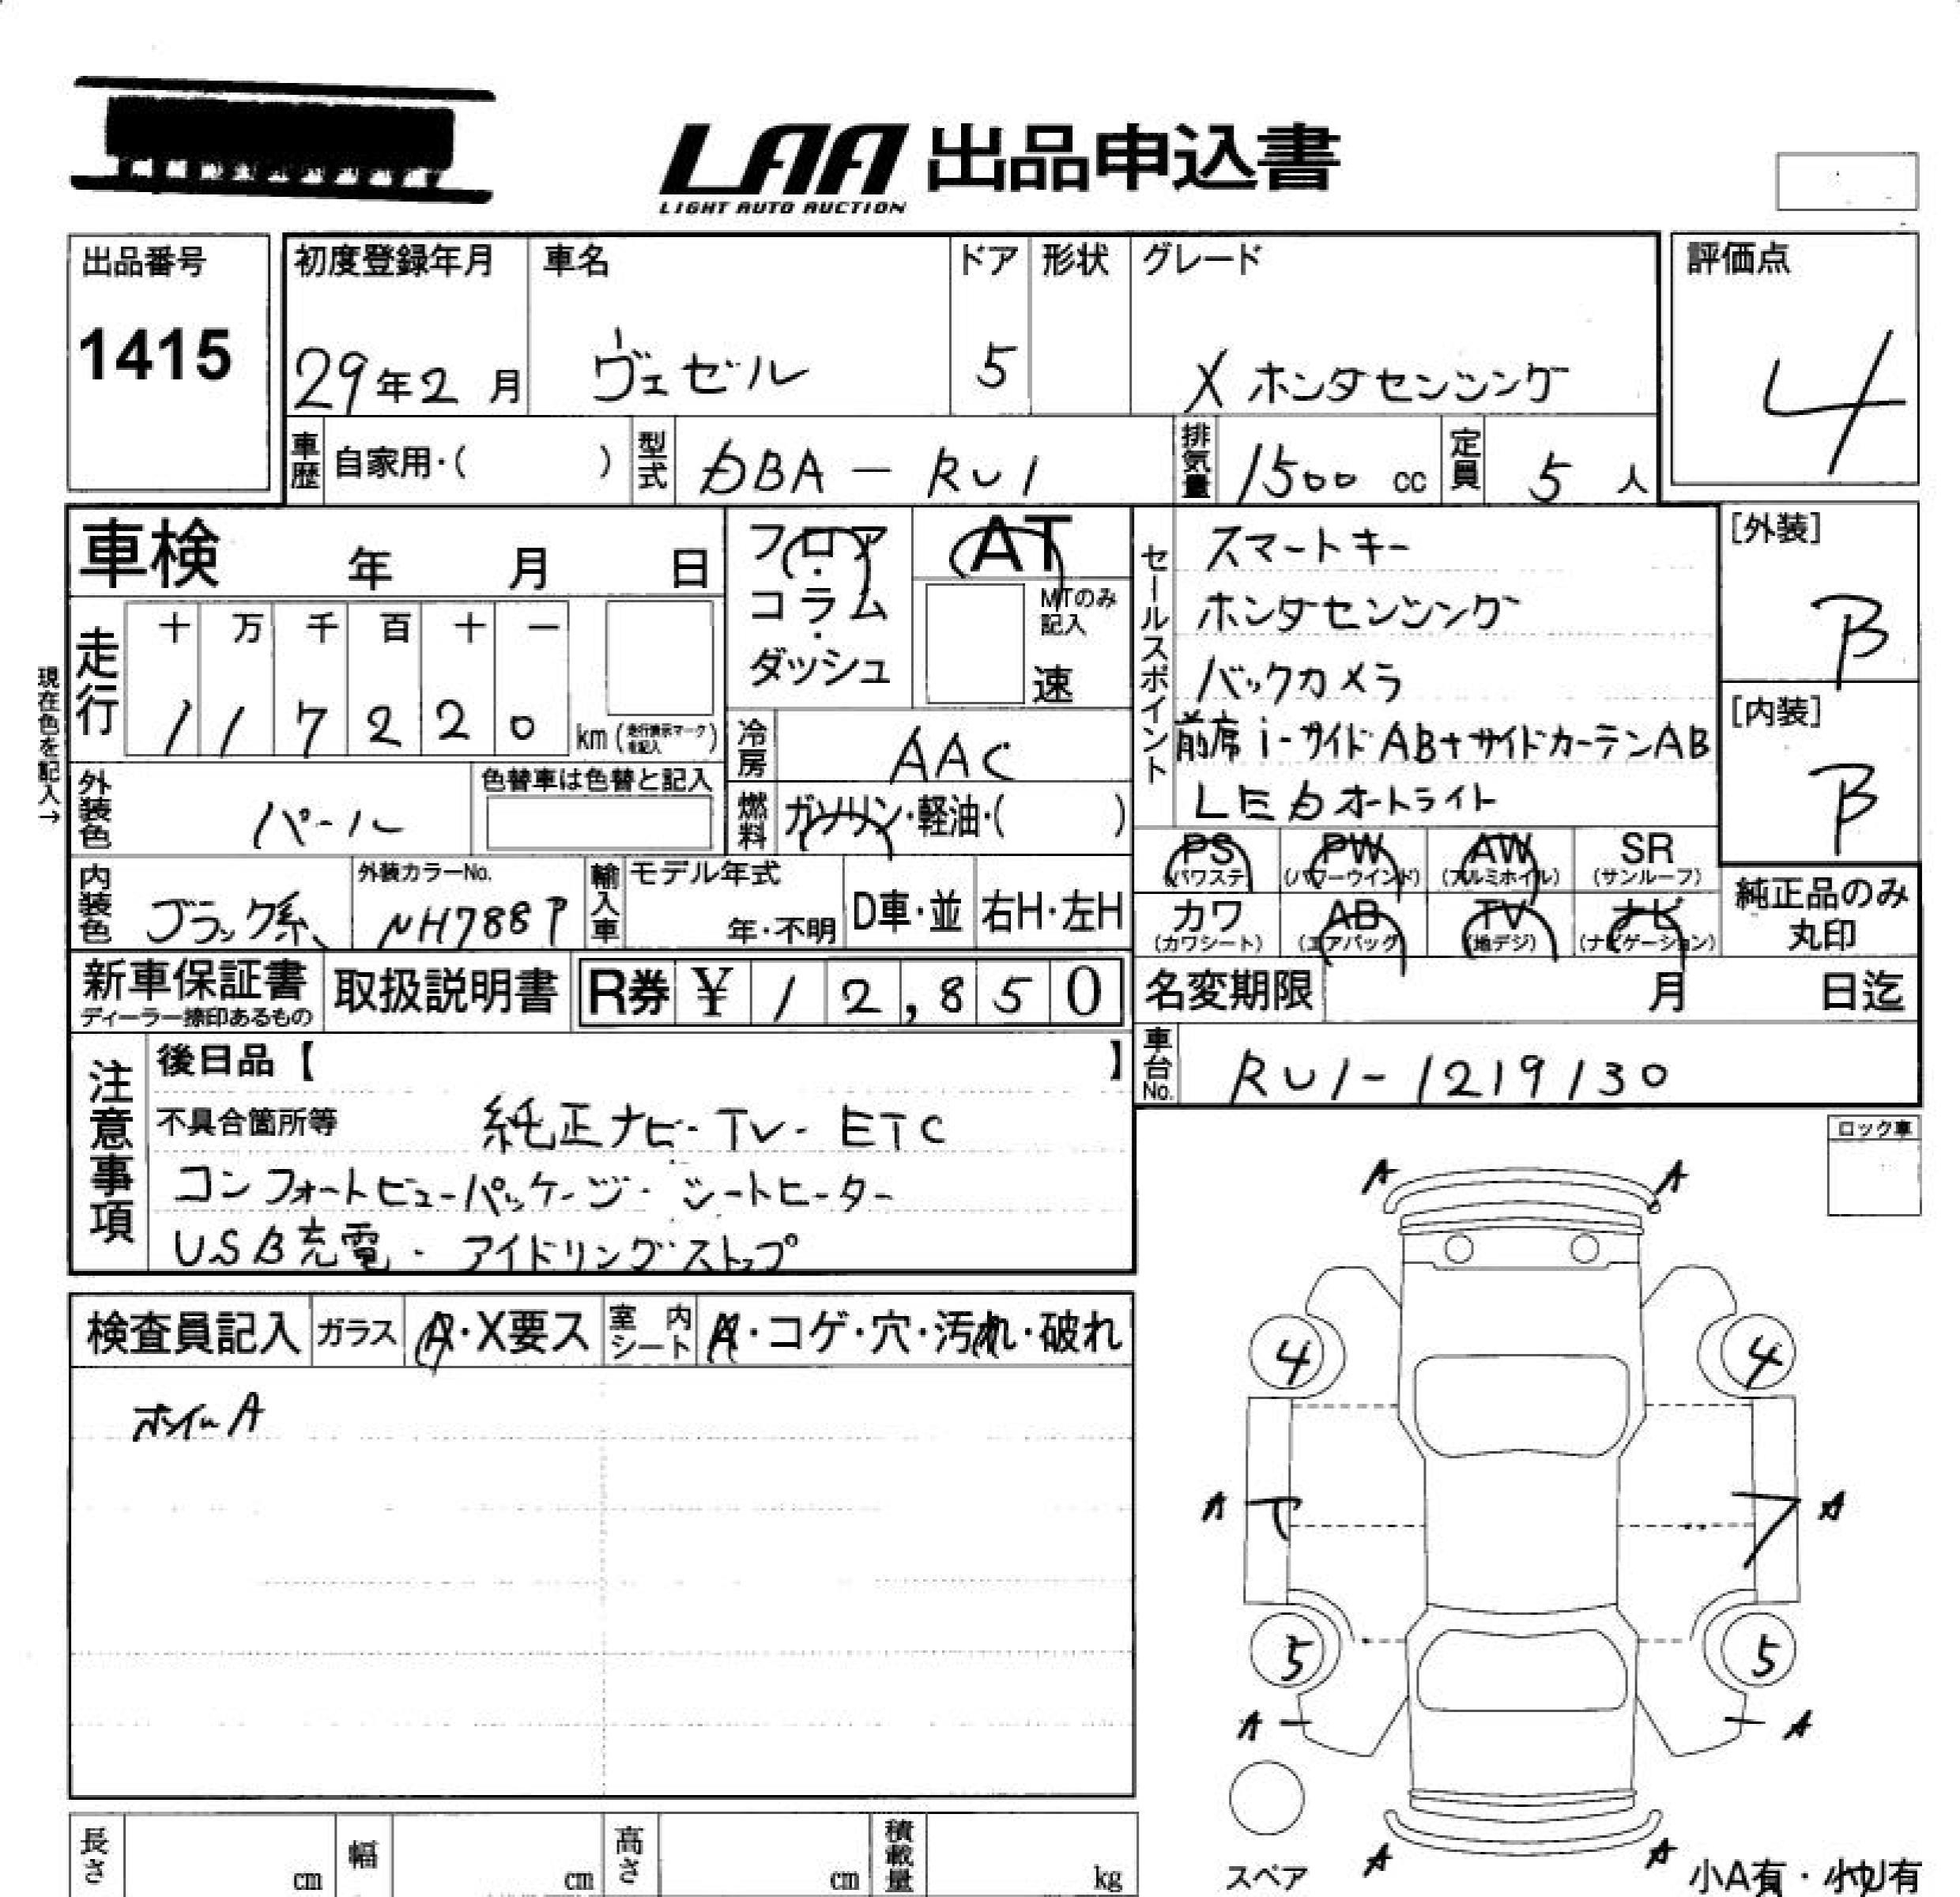 LAA 出品申込書
LIGHT AUTO AUCTION
出品番号
1415
初度登録年月
29年2月
車名
ヴェゼル
ドア
5
形状
グレード
X ホンダセンシング
評価点
4
車歴 自家用・( )
型式 DBA-RU1
排気量 1500 cc
定員 5 人
車検 年 月 日
フロア・コラム・ダッシュ
AT
MTのみ記入
速
現在色を記入→
走行 十 万 千 百 十 一
117220 km (走行表示マークを記入)
冷房 AAC
外装色 パール
色替車は色替と記入
燃料 ガソリン・軽油・( )
内装色 ブラック系
外装カラーNo.
NH788P
輸入車 モデル年式
年・不明
D車・並
右H・左H
セールスポイント
スマートキー
ホンダセンシング
バックカメラ
前席i-サイドAB+サイドカーテンAB
LEDオートライト
[外装]
B
[内装]
B
PS (パワステ)
PW (パワーウインド)
AW (アルミホイル)
SR (サンルーフ)
カワ (カワシート)
AB (エアバッグ)
TV (地デジ)
ナビ (ナビゲーション)
純正品のみ丸印
新車保証書
ディーラー捺印あるもの
取扱説明書
R券 ¥ 12,850
名変期限 月 日迄
車台No. RU1-1219130
注意事項
後日品【 】
不具合箇所等 純正ナビ・TV・ETC
コンフォートビューパッケージ・シートヒーター
USB充電・アイドリングストップ
ロック車
検査員記入
ガラス A・X要ス
室内シート A・コゲ・穴・汚れ・破れ
ホイールA
A A
4 4
A A
5 5
A A
スペア
A A
小A有・小U有
長さ cm
幅 cm
高さ cm
積載量 kg